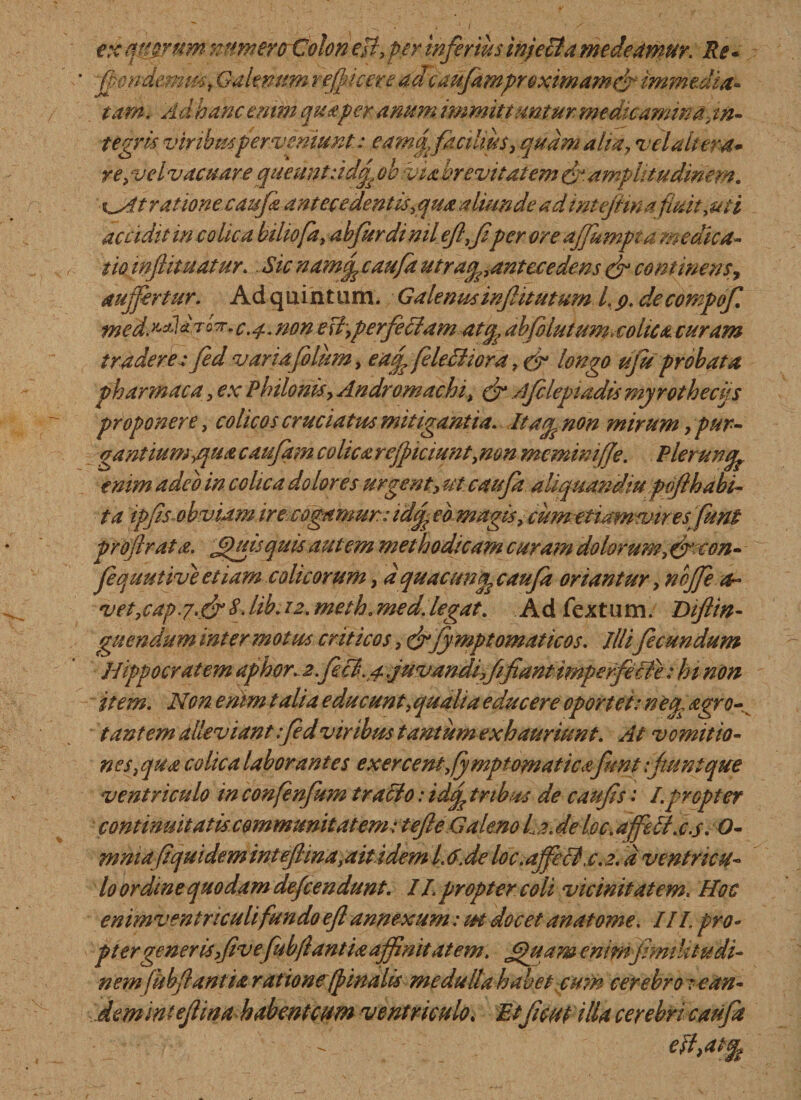 ex quorum numero Colon est, per inferius injecta medeamur. Re-
spondemus, Galenum respicere ad causam proximam & immedia-
tam. Ad hanc enim quæ per anum immittuntur medicamina, in-
tegris viribus perveniunt: eamq́; facilius, quàm alia, vel altera-
re, vel vacuare queunt: idq́; ob viæ brevitatem & amplitudinem.
At ratione causæ antecedentis, quæ aliunde ad intestina fluit, uti
accidit in colica biliosa, absurdi nil est, si per ore assumpta medica-
tio instituatur. Sic namq́; causa utraq́;, antecedens & continens,
auffertur. Ad quintum. Galenus institutum l. 9. de compos.
med. κατὰ τόπ. c. 4. non est, perfectam atq́; absolutum colicæ curam
tradere: sed varia solùm, eaq́; selectiora, & longo usu probata
pharmaca, ex Philonis, Andromachi, & Asclepiadis myrothecijs
proponere, colicos cruciatus mitigantia. Itaq́; non mirum, pur-
gantium, quæ causam colicæ respiciunt, non meminisse. Plerunq́;
enim adeò in colica dolores urgent, ut causa aliquandiu posthabi-
ta ipsis obviam ire cogamur: idq́; eò magis, cùm etiam vires sunt
prostratæ. Quisquis autem methodicam curam dolorum, & con-
sequutivè etiam colicorum, à quacunq́; causa oriantur, nosse a-
vet, cap. 7. & 8. lib. 12. meth. med. legat. Ad sextum. Distin-
guendum inter motus criticos, & symptomaticos. Illi secundum
Hippocratem aphor. 2. sect. 4. juvandi, si fiant imperfectè: hi non
item. Non enim talia educunt, qualia educere oportet: neq́; ægro-
tantem alleviant: sed viribus tantùm exhauriunt. At vomitio-
nes, quæ colica laborantes exercent, symptomaticæ sunt: fiuntque
ventriculo in consensum tracto: idq́; tribus de causis: I. propter
continuitatis communitatem: teste Galeno l. 2. de loc. affect. c. 5. O-
mnia siquidem intestina, ait idem l. 6. de loc. affect. c. 2. à ventricu-
lo ordine quodam descendunt. II. propter coli vicinitatem. Hoc
enim ventriculi fundo est annexum: ut docet anatome. III. pro-
pter generis, sive substantiæ affinitatem. Quam enim similitudi-
nem substantiæ ratione spinalis medulla habet cum cerebro: ean-
dem intestina habent cum ventriculo. Et sicut illa cerebri causa
est, atq́;